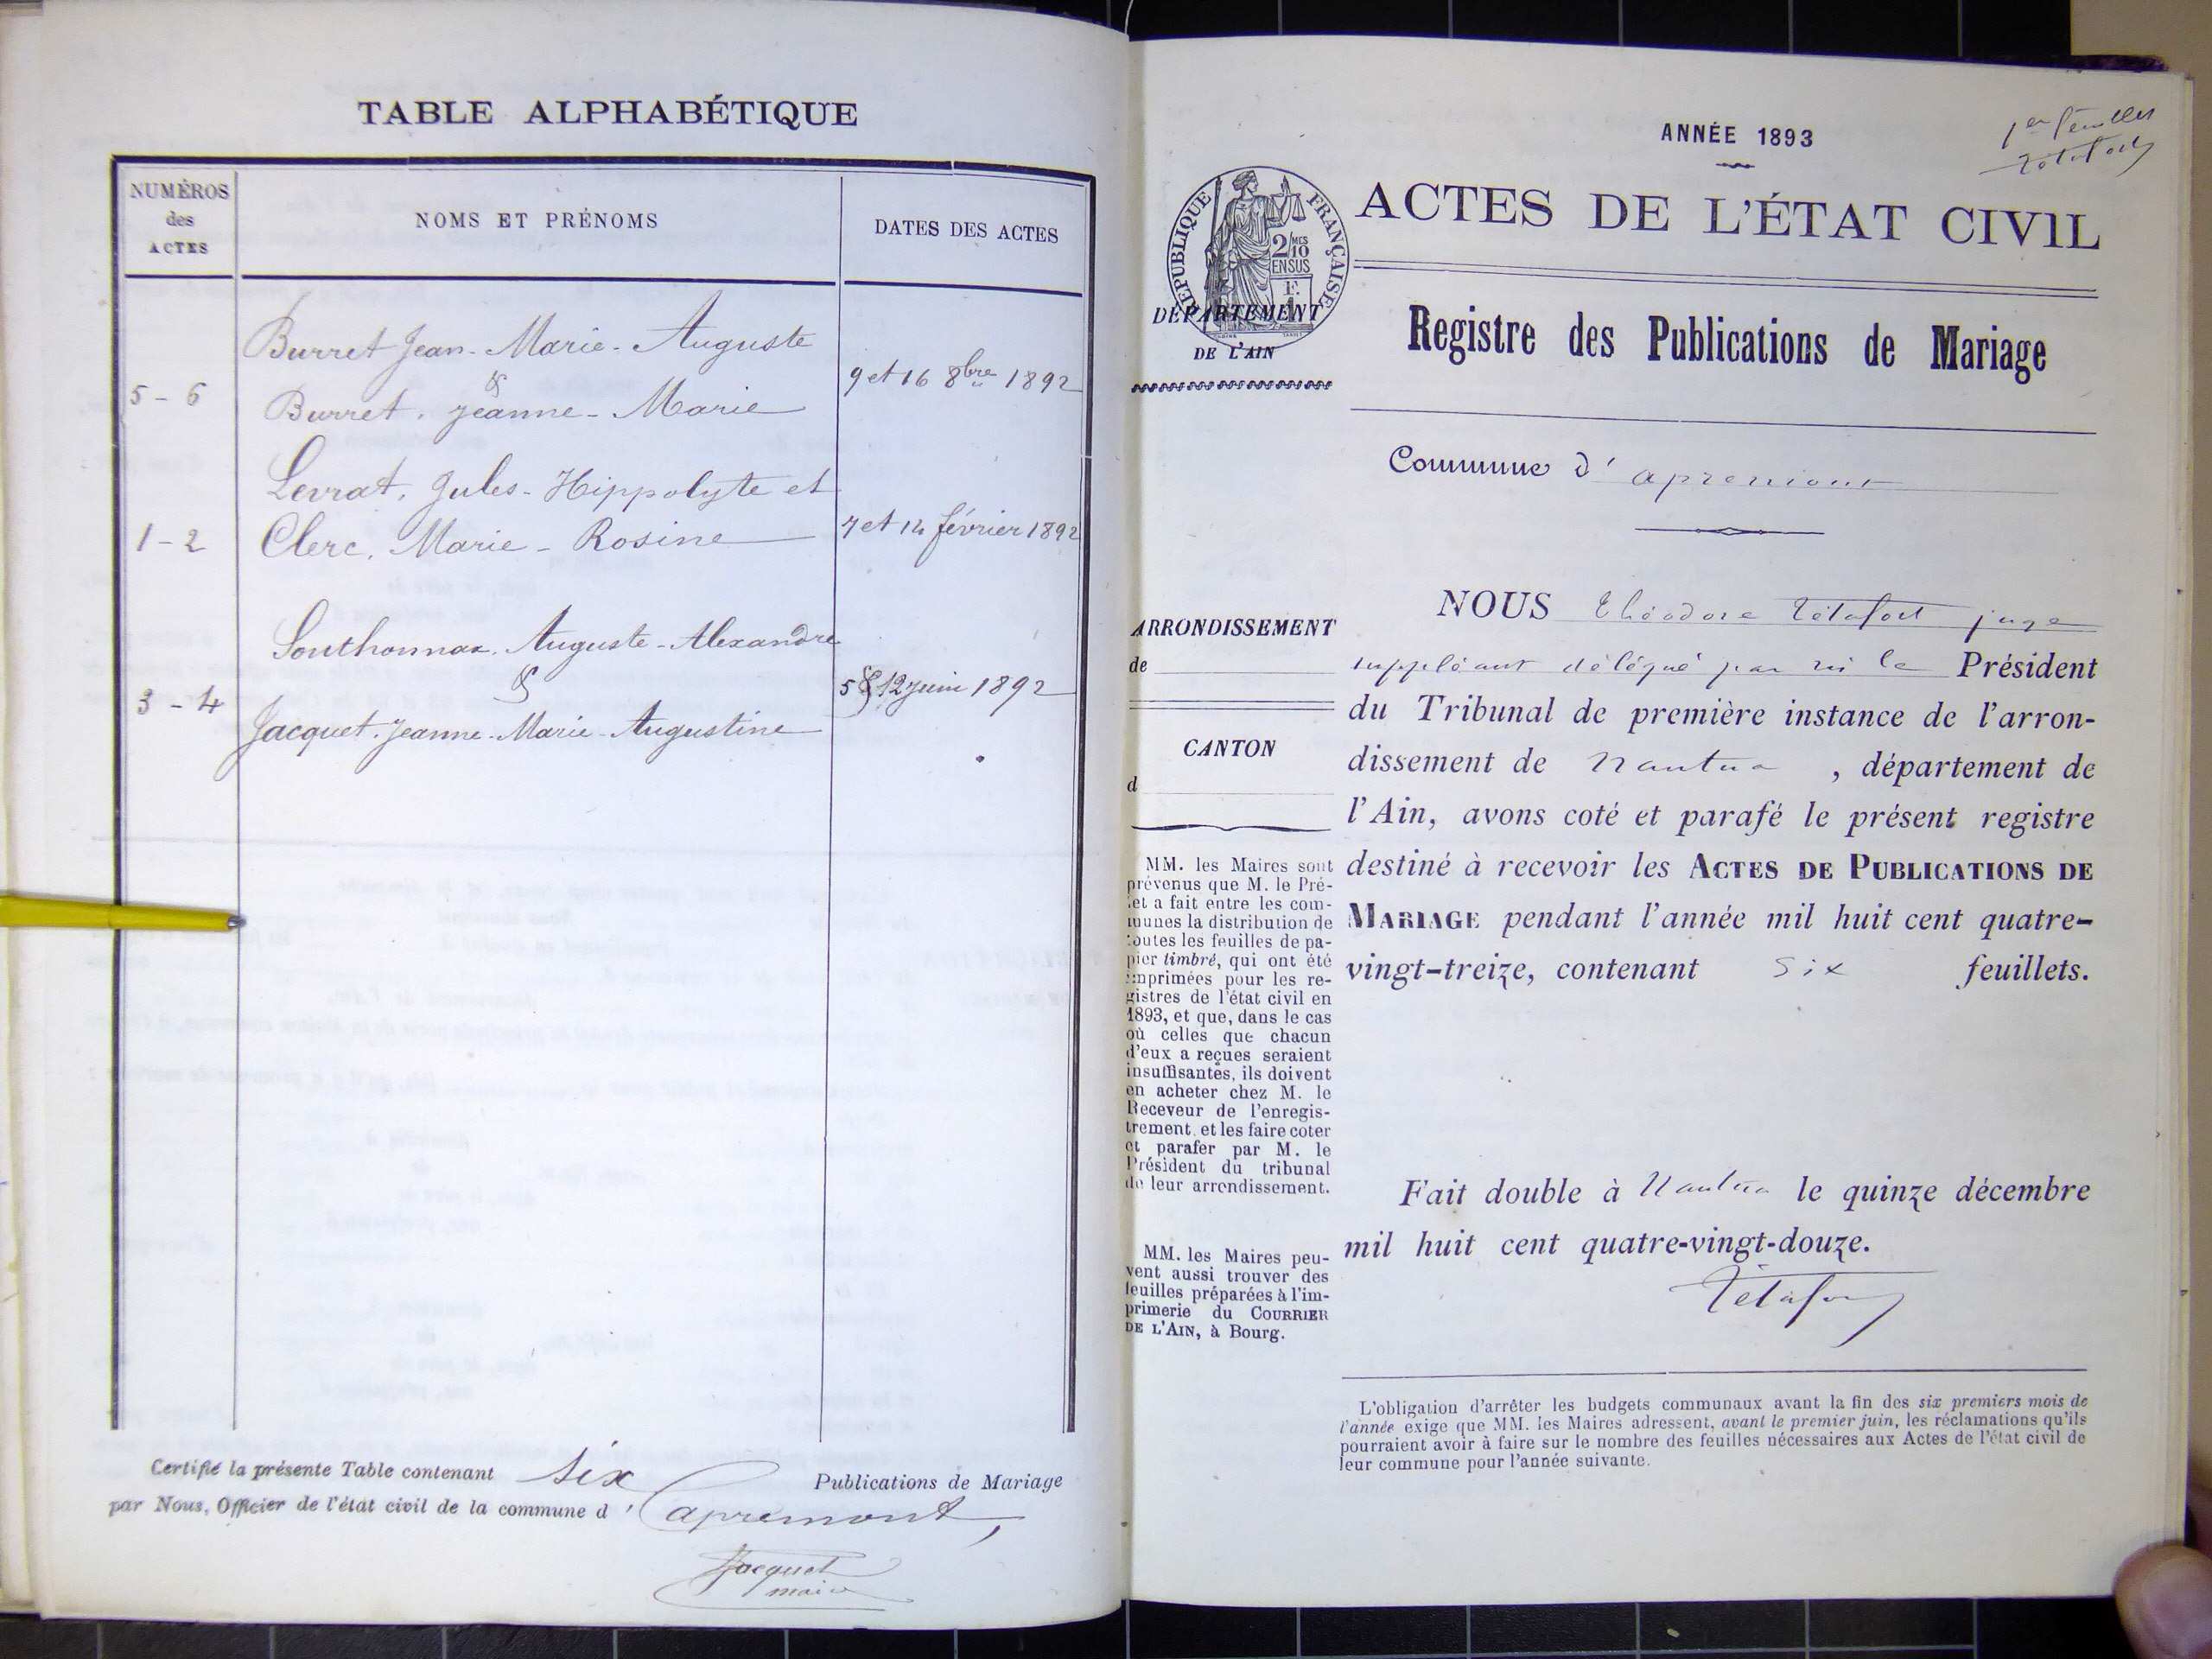 TABLE ALPHABÉTIQUE
NUMÉROS
des
ACTES
NOMS ET PRÉNOMS
DATES DES ACTES
Burret Jean-Marie-Auguste
&
5-6
9 et 16 8bre 1892
Burret, Jeanne-Marie
Levrat, Jules-Hippolyte et
1-2
Clerc, Marie-Rosine
7 et 14 février 1892
Southonnax, Auguste-Alexandre
&
3-4
5 & 12 juin 1892
Jacquet, Jeanne-Marie-Augustine
Certifié la présente Table contenant six Publications de Mariage
par Nous, Officier de l'état civil de la commune d'apremont,
Jacquet
maire
1er feuillet
ANNÉE 1893
RÉPUBLIQUE FRANÇAISE
2/10
MES
EN SUS
ACTES DE L'ÉTAT CIVIL
DÉPARTEMENT
DE L'AIN
Registre des Publications de Mariage
Commune d'apremont
ARRONDISSEMENT
de
CANTON
d
MM. les Maires sont
prévenus que M. le Pré-
fet a fait entre les com-
munes la distribution de
toutes les feuilles de pa-
pier timbré, qui ont été
imprimées pour les re-
gistres de l'état civil en
1893, et que, dans le cas
où celles que chacun
d'eux a reçues seraient
insuffisantes, ils doivent
en acheter chez M. le
Receveur de l'enregis-
trement, et les faire coter
et parafer par M. le
Président du tribunal
de leur arrondissement.
MM. les Maires peu-
vent aussi trouver des
feuilles préparées à l'im-
primerie du COURRIER
DE L'AIN, à Bourg.
NOUS Théodore Tétafort juge
suppléant délégué par M le Président
du Tribunal de première instance de l'arron-
dissement de Nantua, département de
l'Ain, avons coté et parafé le présent registre
destiné à recevoir les ACTES DE PUBLICATIONS DE
MARIAGE pendant l'année mil huit cent quatre-
vingt-treize, contenant six feuillets.
Fait double à Nantua le quinze décembre
mil huit cent quatre-vingt-douze.
Tétafort
L'obligation d'arrêter les budgets communaux avant la fin des six premiers mois de
l'année exige que MM. les Maires adressent, avant le premier juin, les réclamations qu'ils
pourraient avoir à faire sur le nombre des feuilles nécessaires aux Actes de l'état civil de
leur commune pour l'année suivante.